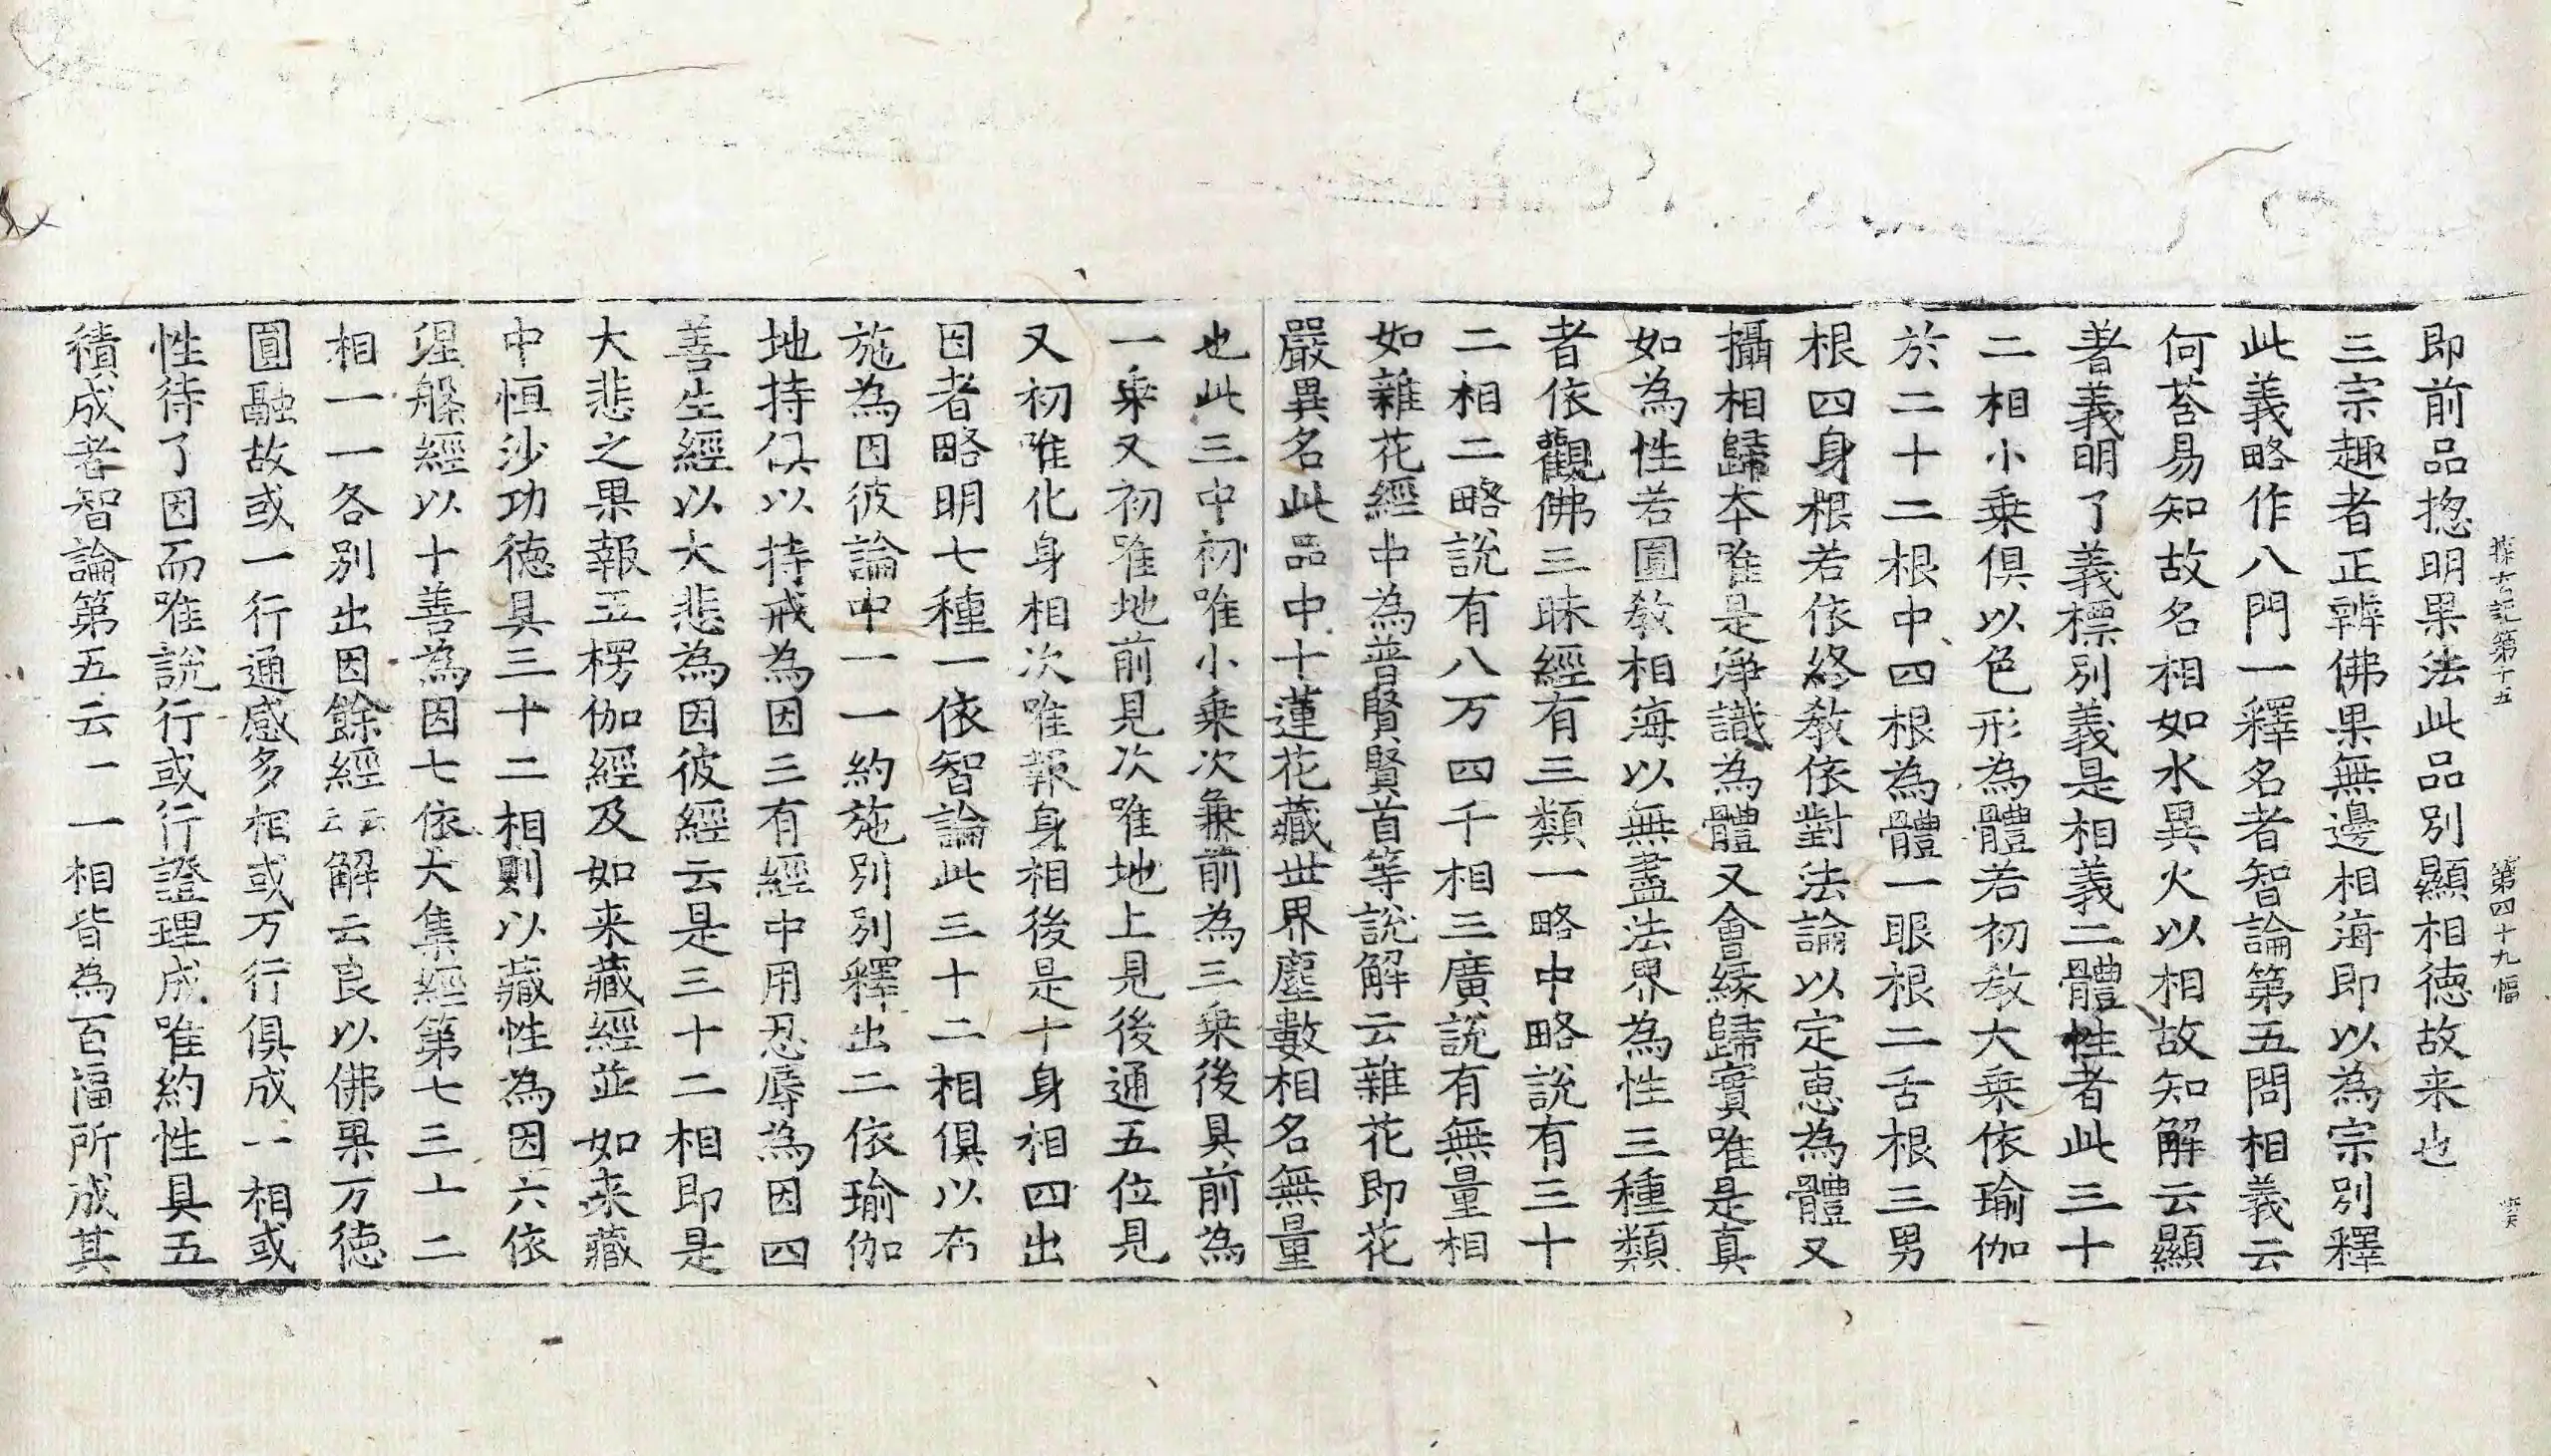 探玄記第十五　第四十九幅
即前品揔明果法此品別顯相德故来也
三宗趣者正辨佛果無邊相海即以為宗別釋
此義略作八門一釋名者智論第五問相義云
何荅易知故名相如水異火以相故知解云顯
著義明了義標別義是相義二體性者此三十
二相小乗俱以色形為體若初教大乗依瑜伽
於二十二根中四根為體一眼根二舌根三男
根四身根若依終教依對法論以定恵為體又
攝相歸夲唯是淨識為體又會緣歸實唯是真
如為性若圓教相海以無盡法界為性三種類
者依觀佛三昧經有三類一略中略說有三十
二相二略說有八万四千相三廣說有無量相
如雜花經中為普賢賢首等說解云雜花即花
嚴異名此品中十蓮花藏世界塵數相名無量
也此三中初唯小乗次兼前為三乗後具前為
一乗又初唯地前見次唯地上見後通五位見
又初唯化身相次唯報身相後是十身相四出
因者略明七種一依智論此三十二相俱以布
施為因彼論中一一約施別別釋出二依瑜伽
地持俱以持戒為因三有經中用忍辱為因四
善生經以大悲為因彼經云是三十二相即是
大悲之果報五楞伽經及如来藏經並如来藏
中恒沙功德具三十二相則以藏性為因六依
涅槃經以十善為因七依大集經第七三十二
相一一各別出因餘經云云解云良以佛果万德
圓融故或一行通感多相或万行俱成一相或
性待了因而唯說行或行證理成唯約性具五
積成者智論第五云一一相皆為百福所成其